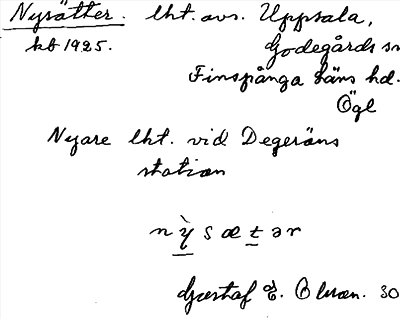 Nysätter. lht. avs. Uppsala,
kb 1925. Godegårds sn
Finspånga läns hd.
Ögl
Nyare lht. vid Degeröns
station
n ỳ s æ t ə r
Gustaf E. Olsson. 30